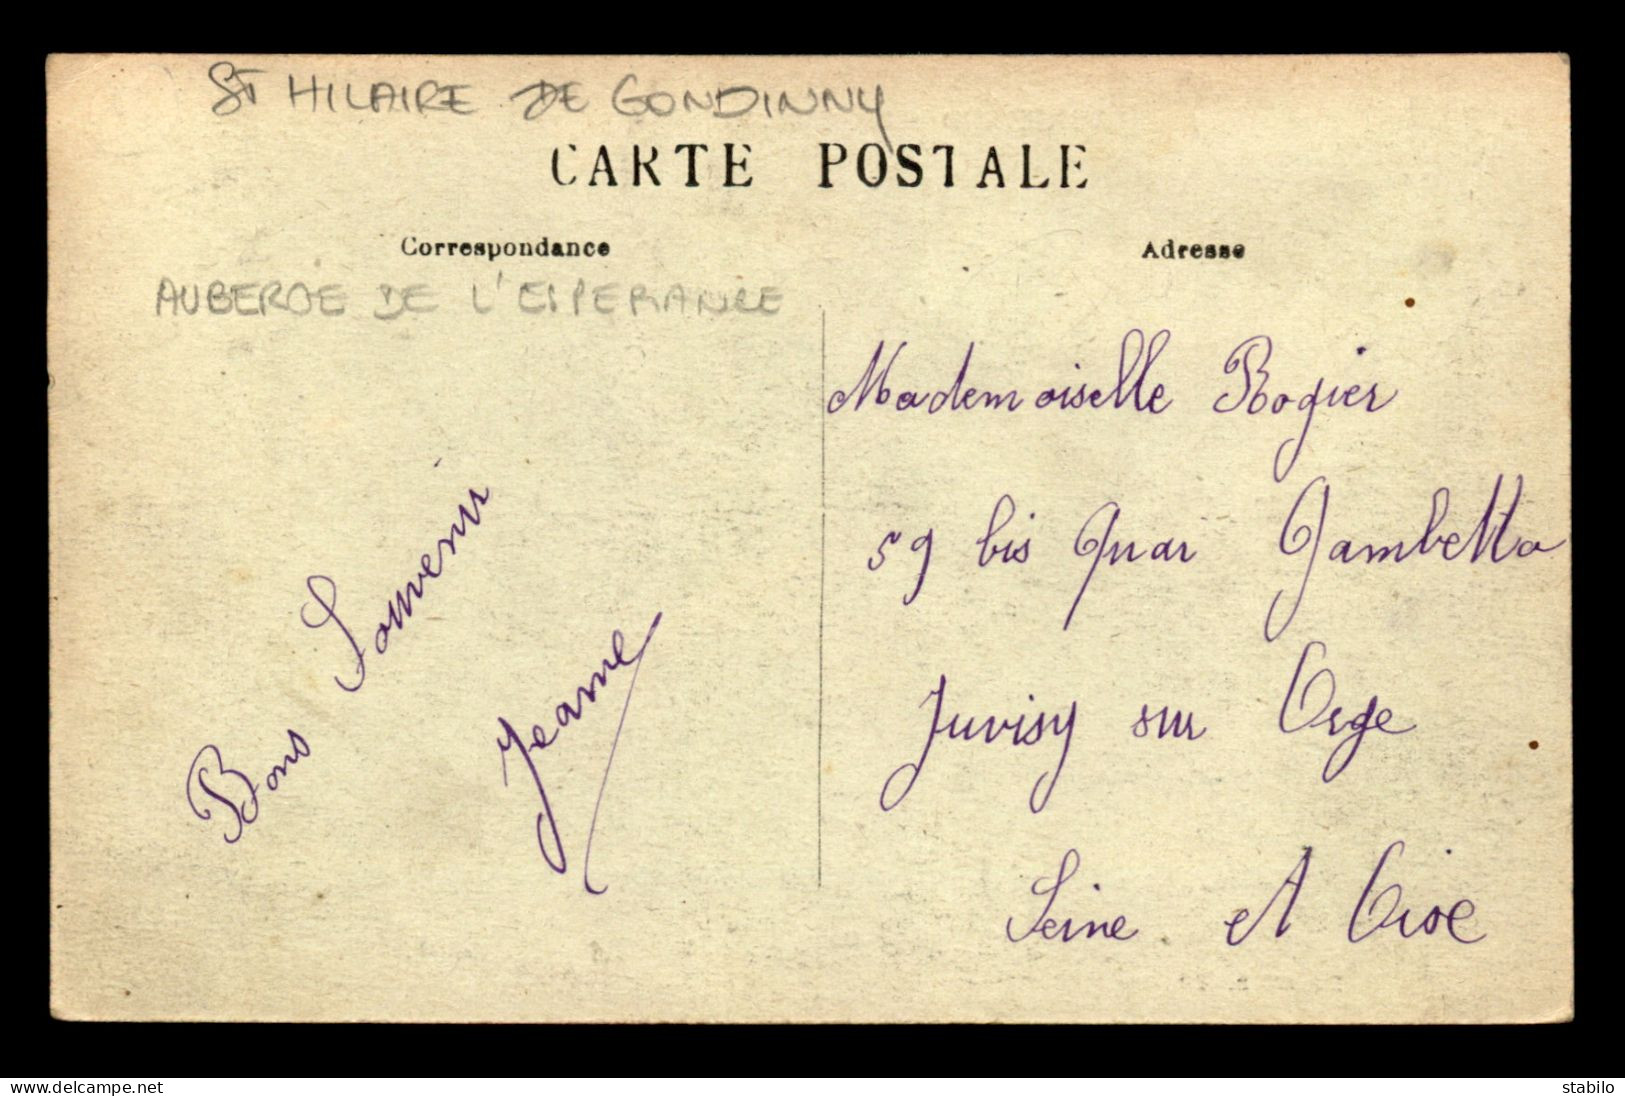 ST HILAIRE DE GONDINNY
CARTE POSTALE
Correspondance
Adresse
AUBERGE DE L'ESPERANCE
Mademoiselle Rogier
59 bis Quai Gambetta
Juvisy sur Orge
Seine et Oise
Bons Souvenir
Jeanne
www.delcampe.net
stabilo